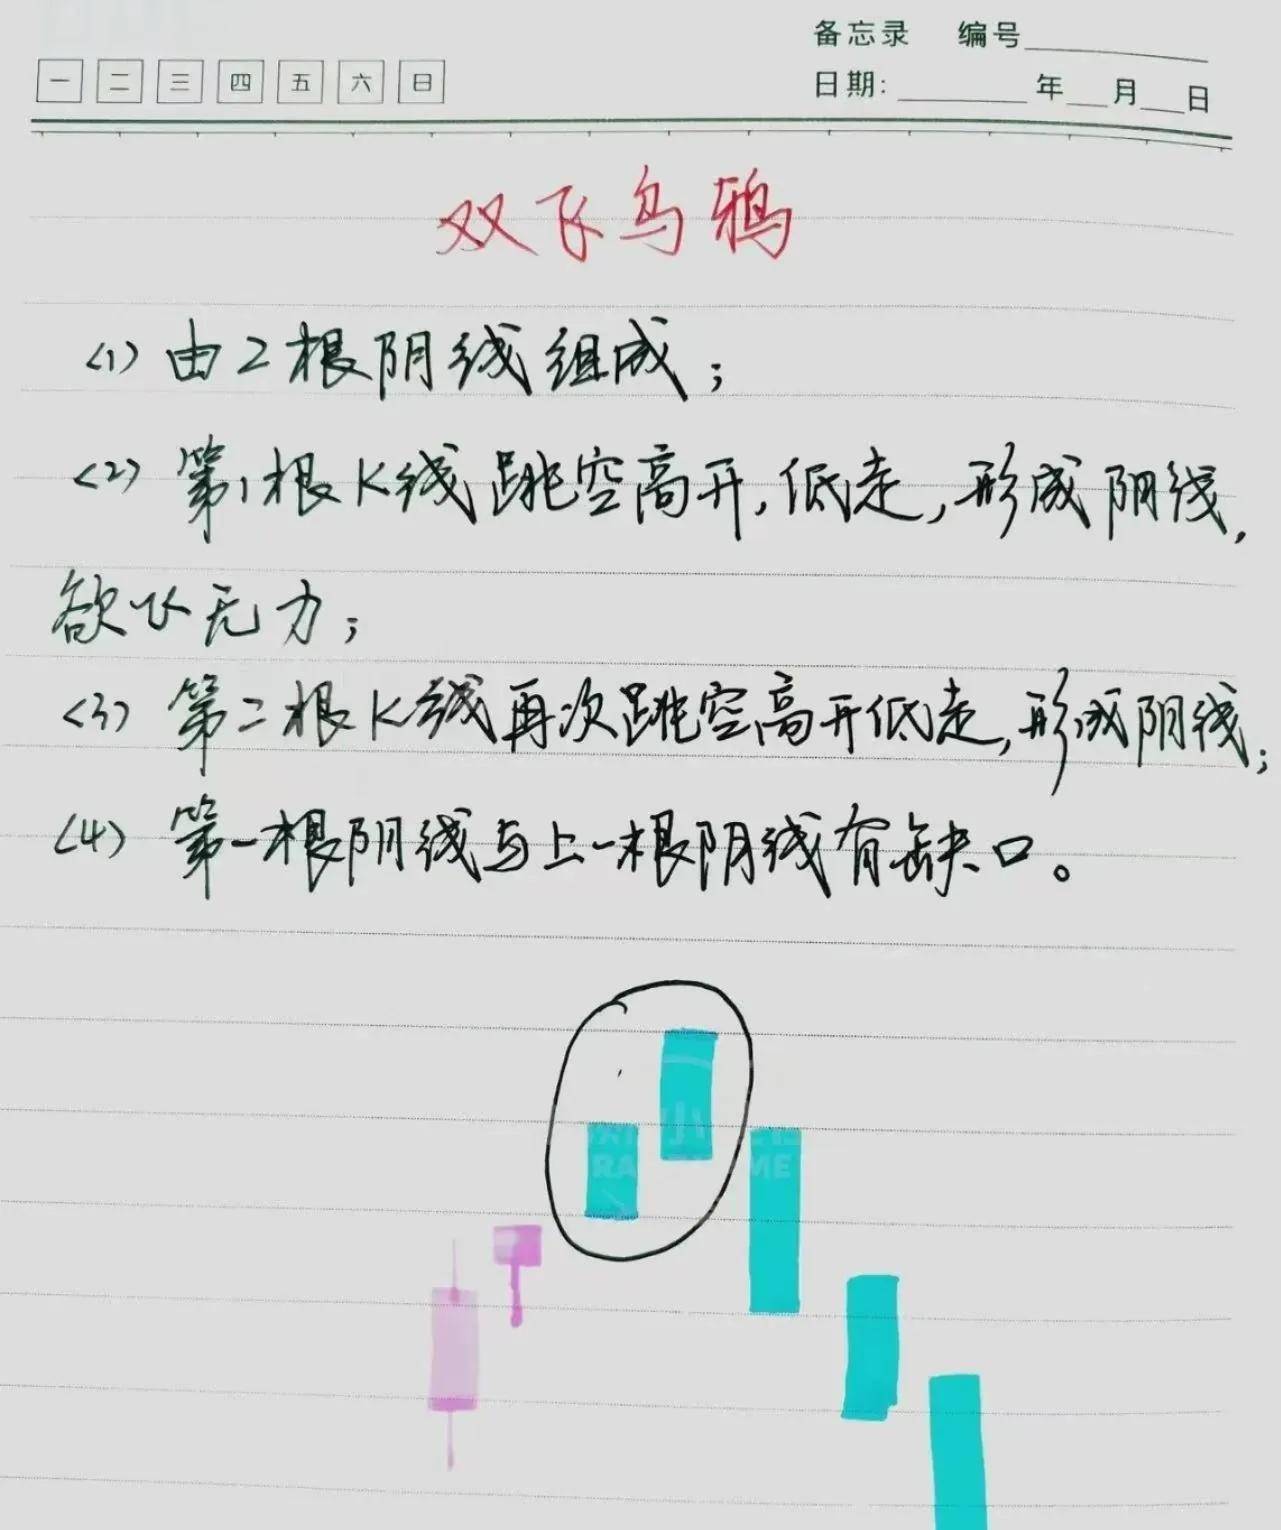 备忘录 编号
一 二 三 四 五 六 日
日期: 年 月 日
双飞乌鸦
(1) 由2根阴线组成;
(2) 第1根K线跳空高开,低走,形成阴线,
欲飞无力;
(3) 第二根K线再次跳空高开低走,形成阴线;
(4) 第一根阴线与上一根阴线有缺口。